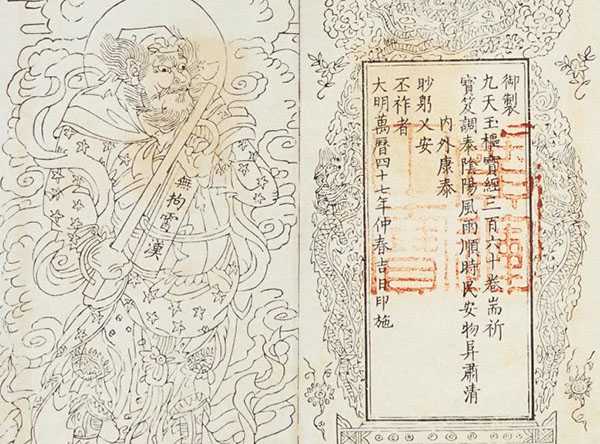 御製
九天玉樞寶經三百六十卷耑祈
寶笈調泰陰陽風雨順時民安物昇肅清
内外康泰
眇躬乂安
丕祚者
大明萬曆四十七年仲春吉日印施
無拘霄漢